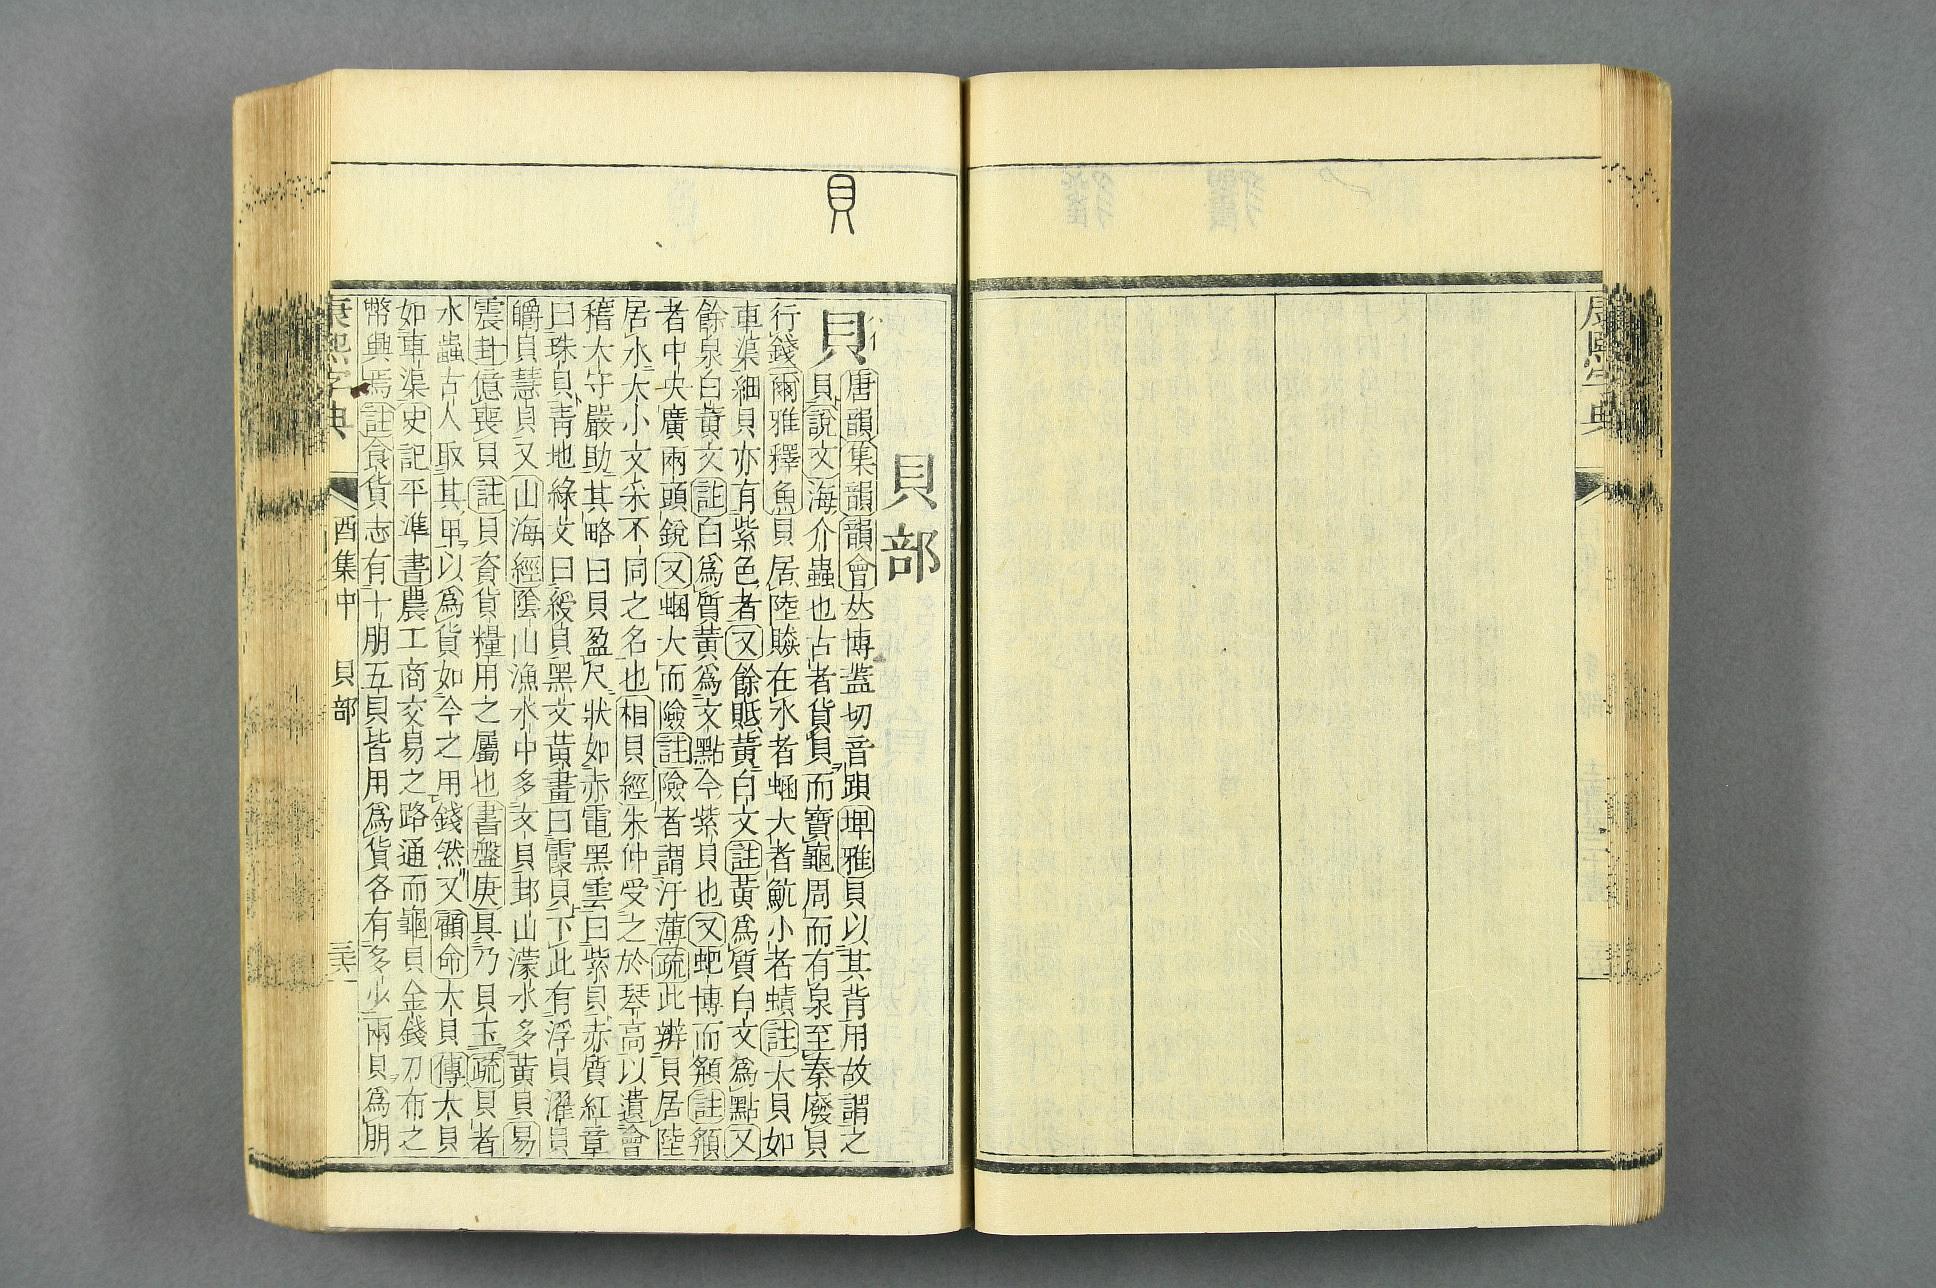 康熙字典
貝
貝部
貝 唐韻集韻韻會𠀤博蓋切音 埤雅貝以其背用故謂之
貝說文海介蟲也古者貨貝而寶龜周而有泉至秦廢貝
行錢爾雅釋魚貝居陸贆在水者蜬大者魧小者𧐐註大貝如
車渠細貝亦有紫色者又餘貾黃白文註黃爲質白文爲點又
餘泉白黃文註白爲質黃爲文點今紫貝也又蚆博而頯註頯
者中央廣兩頭銳又蜠大而險註險者謂汙薄疏此辨貝居陸
居水大小文采不同之名也相貝經朱仲受之於琴高以遺會
稽太守嚴助其略曰貝盈尺狀如赤電黑雲曰紫貝赤質紅章
曰珠貝靑地綠文曰綬貝黑文黃畫曰霞貝下此有浮貝濯貝
皭貝慧貝又山海經陰山漁水中多文貝邽山濛水多黃貝易
震卦億喪貝註貝資貨糧用之屬也書盤庚具乃貝玉疏貝者
水蟲古人取其甲以爲貨如今之用錢然又顧命大貝傳大貝
如車渠史記平準書農工商交易之路通而龜貝金錢刀布之
幣興焉註食貨志有十朋五貝皆用爲貨各有多少兩貝爲朋
康熙字典 酉集中 貝部